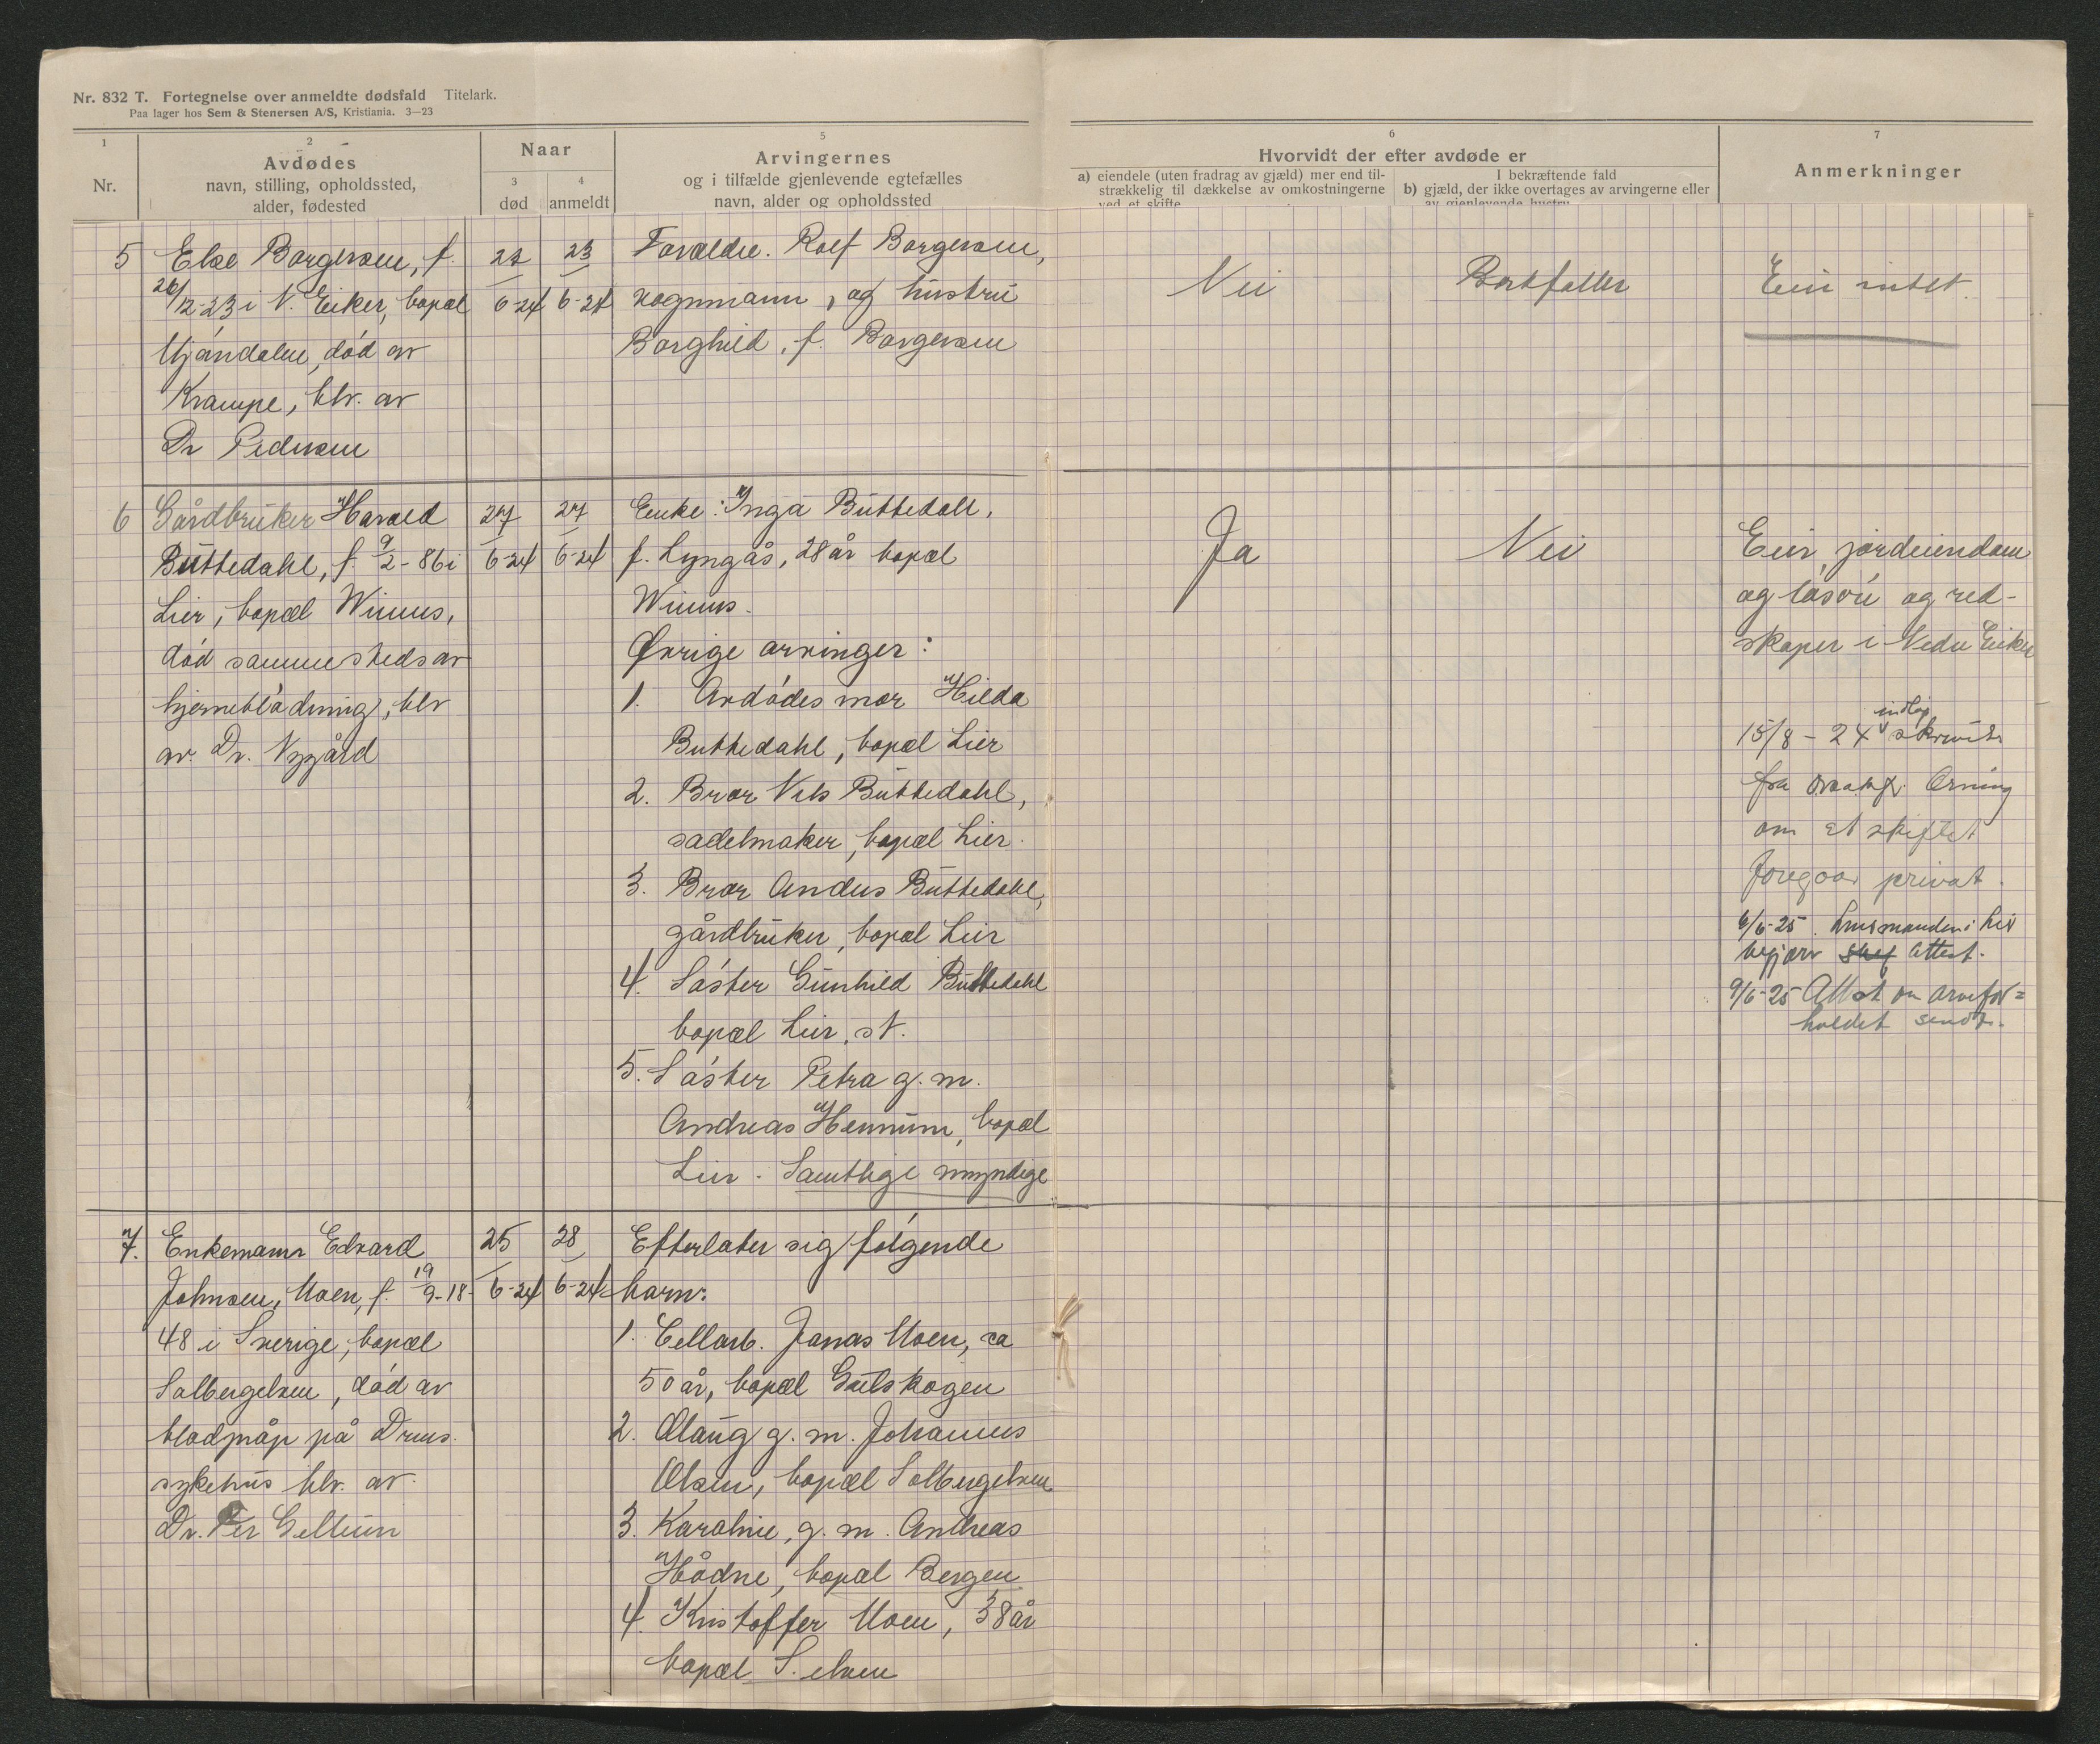 Nr. 832 T. Fortegnelse over anmeldte dødsfald Titelark.
Paa lager hos Sem & Stenersen A/S, Kristiania. 3—23
1
Nr.
2
Avdødes
navn, stilling, opholdssted,
alder, fødested
Naar
3
død
4
anmeldt
5
Arvingernes
og i tilfælde gjenlevende egtefælles
navn, alder og opholdssted
6
Hvorvidt der efter avdøde er
a) eiendele (uten fradrag av gjæld) mer end til-
strækkelig til dækkelse av omkostningerne
ved et skifte
I bekræftende fald
b) gjæld, der ikke overtages av arvingerne eller
av gjenlevende hustru
7
Anmerkninger
5
Else Borgersen, f.
26/12-23 i N. Eiker, bopæl
Mjøndalen, død av
Krampe, blv. av
Dr Pedersen
6-24
23
6-24
Forældre. Rolf Borgersen,
vognmann, og hustru
Borghild, f. Borgersen
Nei
Bortfaller
Eier intet.
6
Gårdbruker Harald
Buttedahl, f. 9/2-86 i
Lier, bopæl Winnes,
død sammesteds av
hjerneblødning, blv
av. Dr. Nygård
27
6-24
27
6-24
Enke: Inga Buttedall,
f. Lyngås, 28 år bopæl
Winnes.
Øvrige arvinger:
1. Avdødes mor Hilda
Buttedahl, bopæl Lier
2. Bror Nels Buttedahl,
sadelmaker, bopæl Lier.
3. Bror Anders Buttedahl,
gårdbruker, bopæl Lier
4. Søster Gunhild Buttedahl
bopæl Lier, st.
5. Søster Petra g. m.
Andreas Hennum, bopæl
Lier. Samtlige myndige
Ja
Nei
Eier jordeiendom
og løsøre og red-
skaper i Nedre Eiker
15/8-24 skrivelse
fra Orning
om at skiftet
foregaar privat.
6/6-25. Lensmanden i Lier
begjærer attest.
9/6-25 Attest om arvefor=
holdet sendt.
7.
Enkemann Edvard
Johnsen, Moen, f. 19/9-18-
48 i Sverige, bopæl
Solbergelven, død av
blodpråp på Drms.
sykehus blv. av
Dr. Per Gellein
25
6-24
28
6-24
Efterlater sig følgende
barn:
1. Cellarb. Jonas Moen, ca
50 år, bopæl Gulskogen
2. Olaug g. m. Johannes
Olsen, bopæl Solbergelven
3. Karoline, g. m. Andreas
Hådne, bopæl Bergen
4. Kristoffer Moen, 38 år
bopæl S. elven